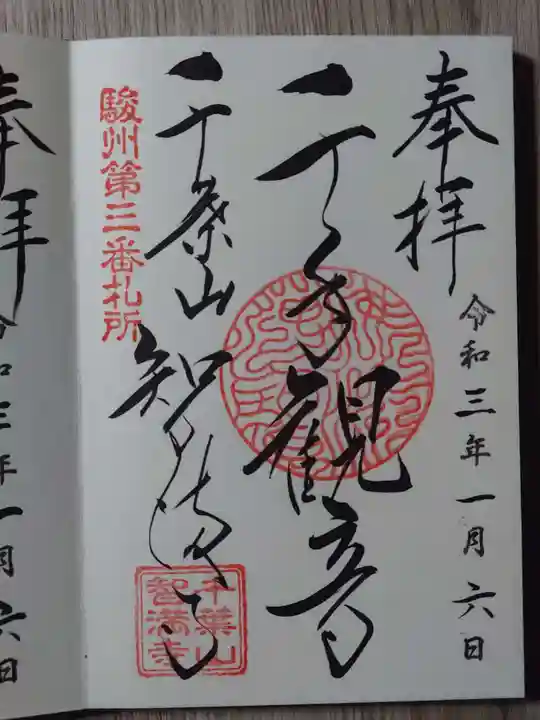 奉拝
令和三年一月六日
千手観音
千葉山
智満寺
駿州第三番札所
千葉山
智満寺
奉拝
令和三年一月六日